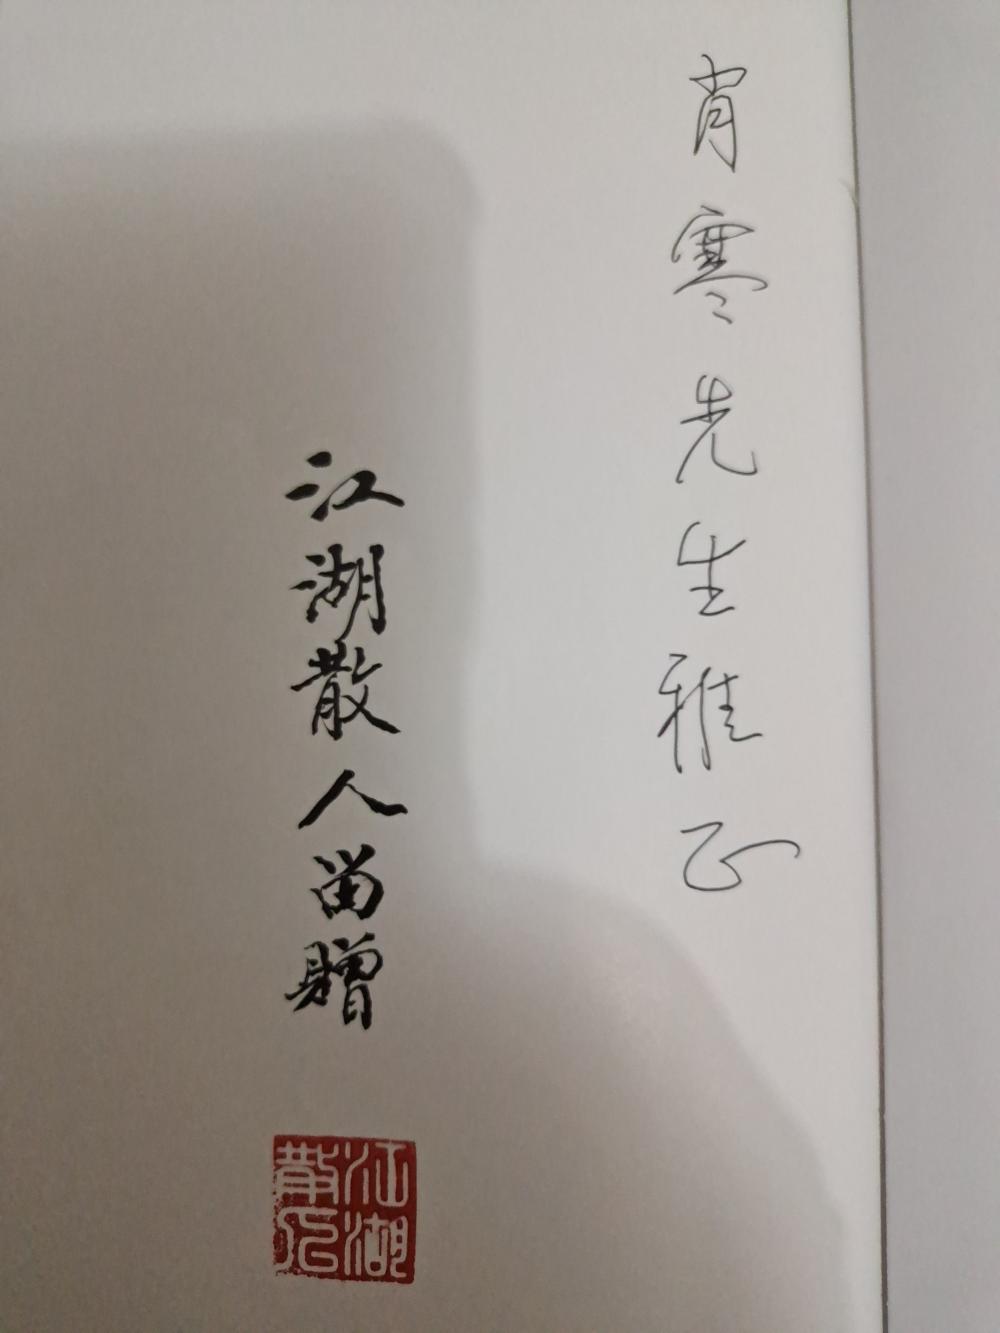 肖寒先生雅正
江湖散人留赠
江湖
散人